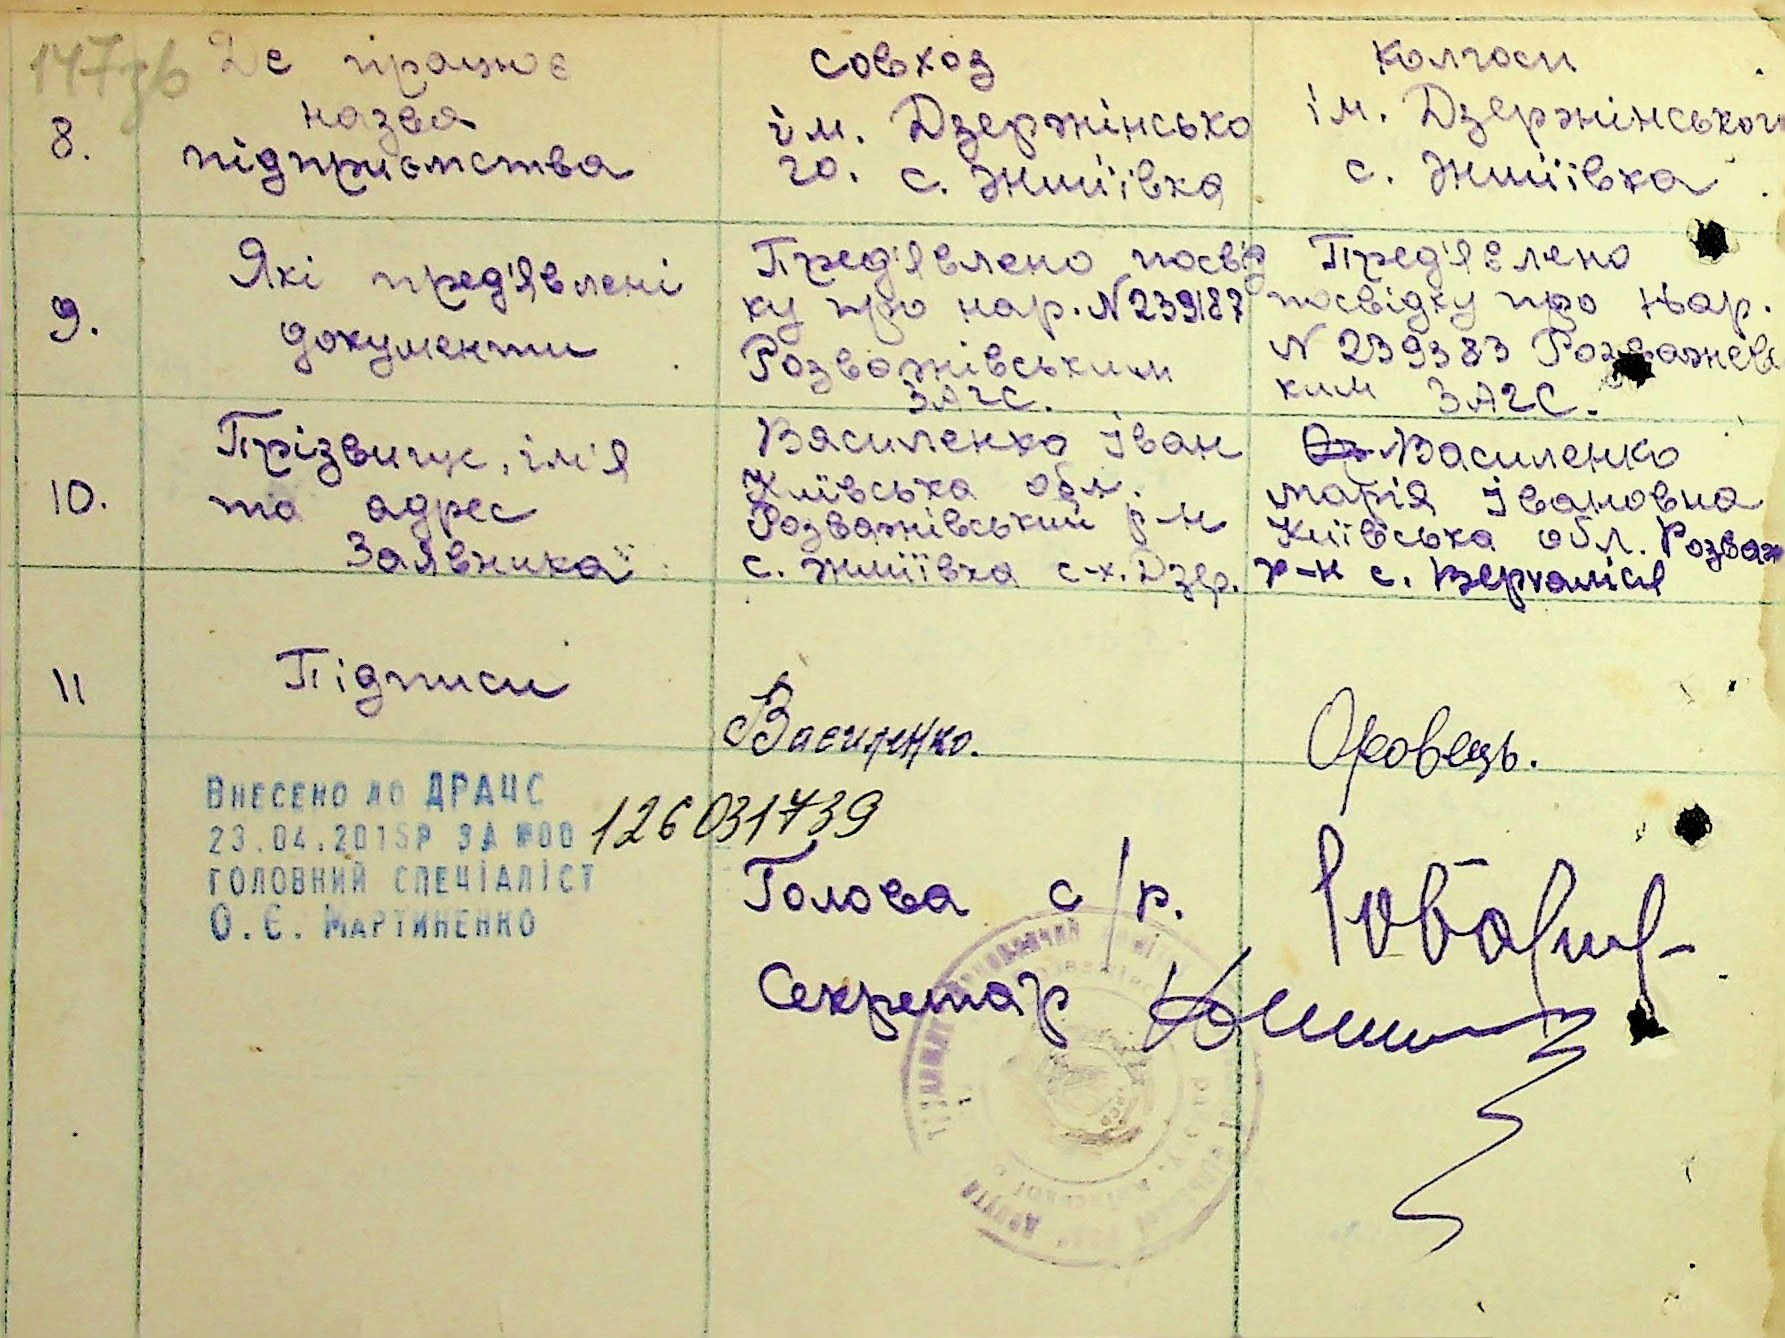 147зв
8.
Де працює
назва
підприємства
совхоз
ім. Дзержінсько
го. с. Жміївка
колгосп
ім. Дзержінського
с. Жміївка
9.
Які пред'явлені
документи
Пред'явлено посвід
ку про нар. N 239187
Розважівським
ЗАГС.
Пред'явлено
посвідку про нар.
N 239383 Розважевс
ким ЗАГС.
10.
Прізвище, ім'я
та адрес
Заявника
Василенко Іван
Київська обл.
Розважівський р-н
с. Жміївка с-х. Дзер.
Василенко
Марія Івановна
Київська обл. Розваж
р-н с. Верхалісся
11
Підписи
Василенко.
Оровець.
Внесено до ДРАЦС
23.04.2015р за №00 126031739
головний спеціаліст
О.Є. Мартиненко
Голова с/р.
Секретар